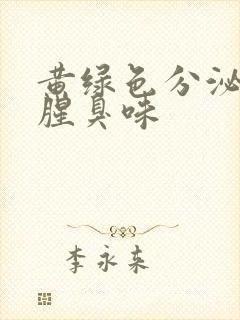 黄绿色分泌
腥臭味
李永来